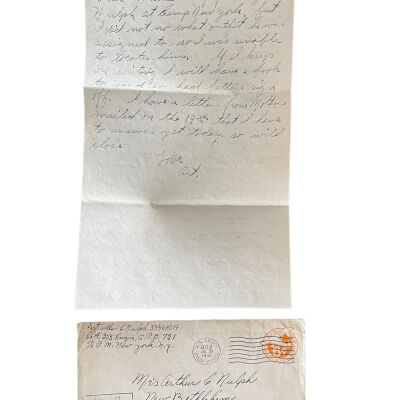 Nulph at Camp New York, but
I did not no what outfit he was
assigned to, so I was unable
to locate him. If I keep
on writing I will have a book
to send so had better sign
off. I have a letter from Mother
mailed on the 19th that I have
to answer yet today, so will
close
Love
Art.
Sgt Arthur C Nulph 33408019
Co A, 355 Engrs, A.P.O. 751
% P.M. New York. N.Y.
Mrs Arthur C Nulph
New Bethlehem